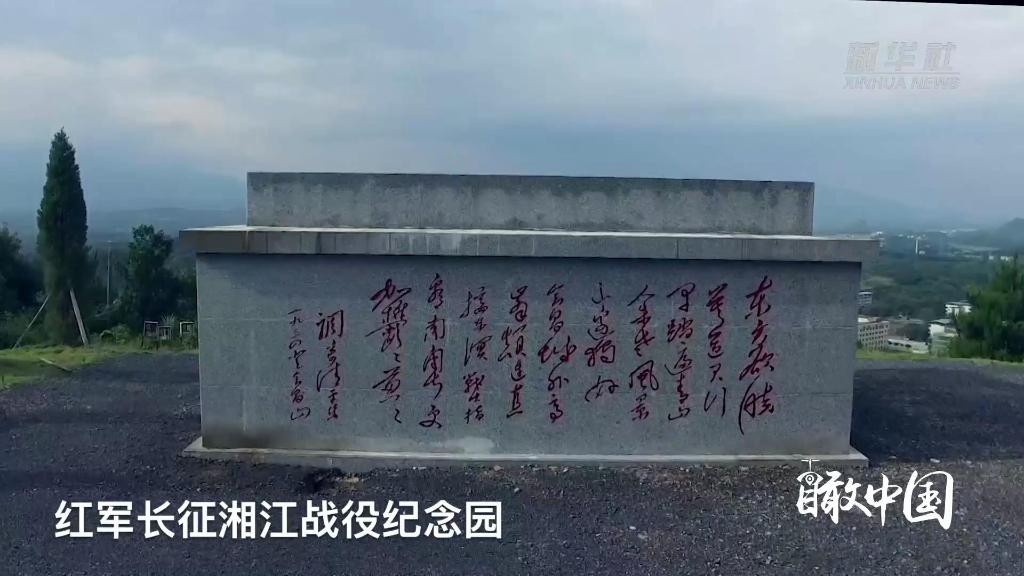 新华社
XINHUA NEWS
东方欲晓
莫道君行
早踏遍青山
人未老风景
这边独好
会昌城外高
峰颠连直
接东溟战士指
看南粤更
加郁々葱々
调寄清平乐
红军长征湘江战役纪念园
瞰中国